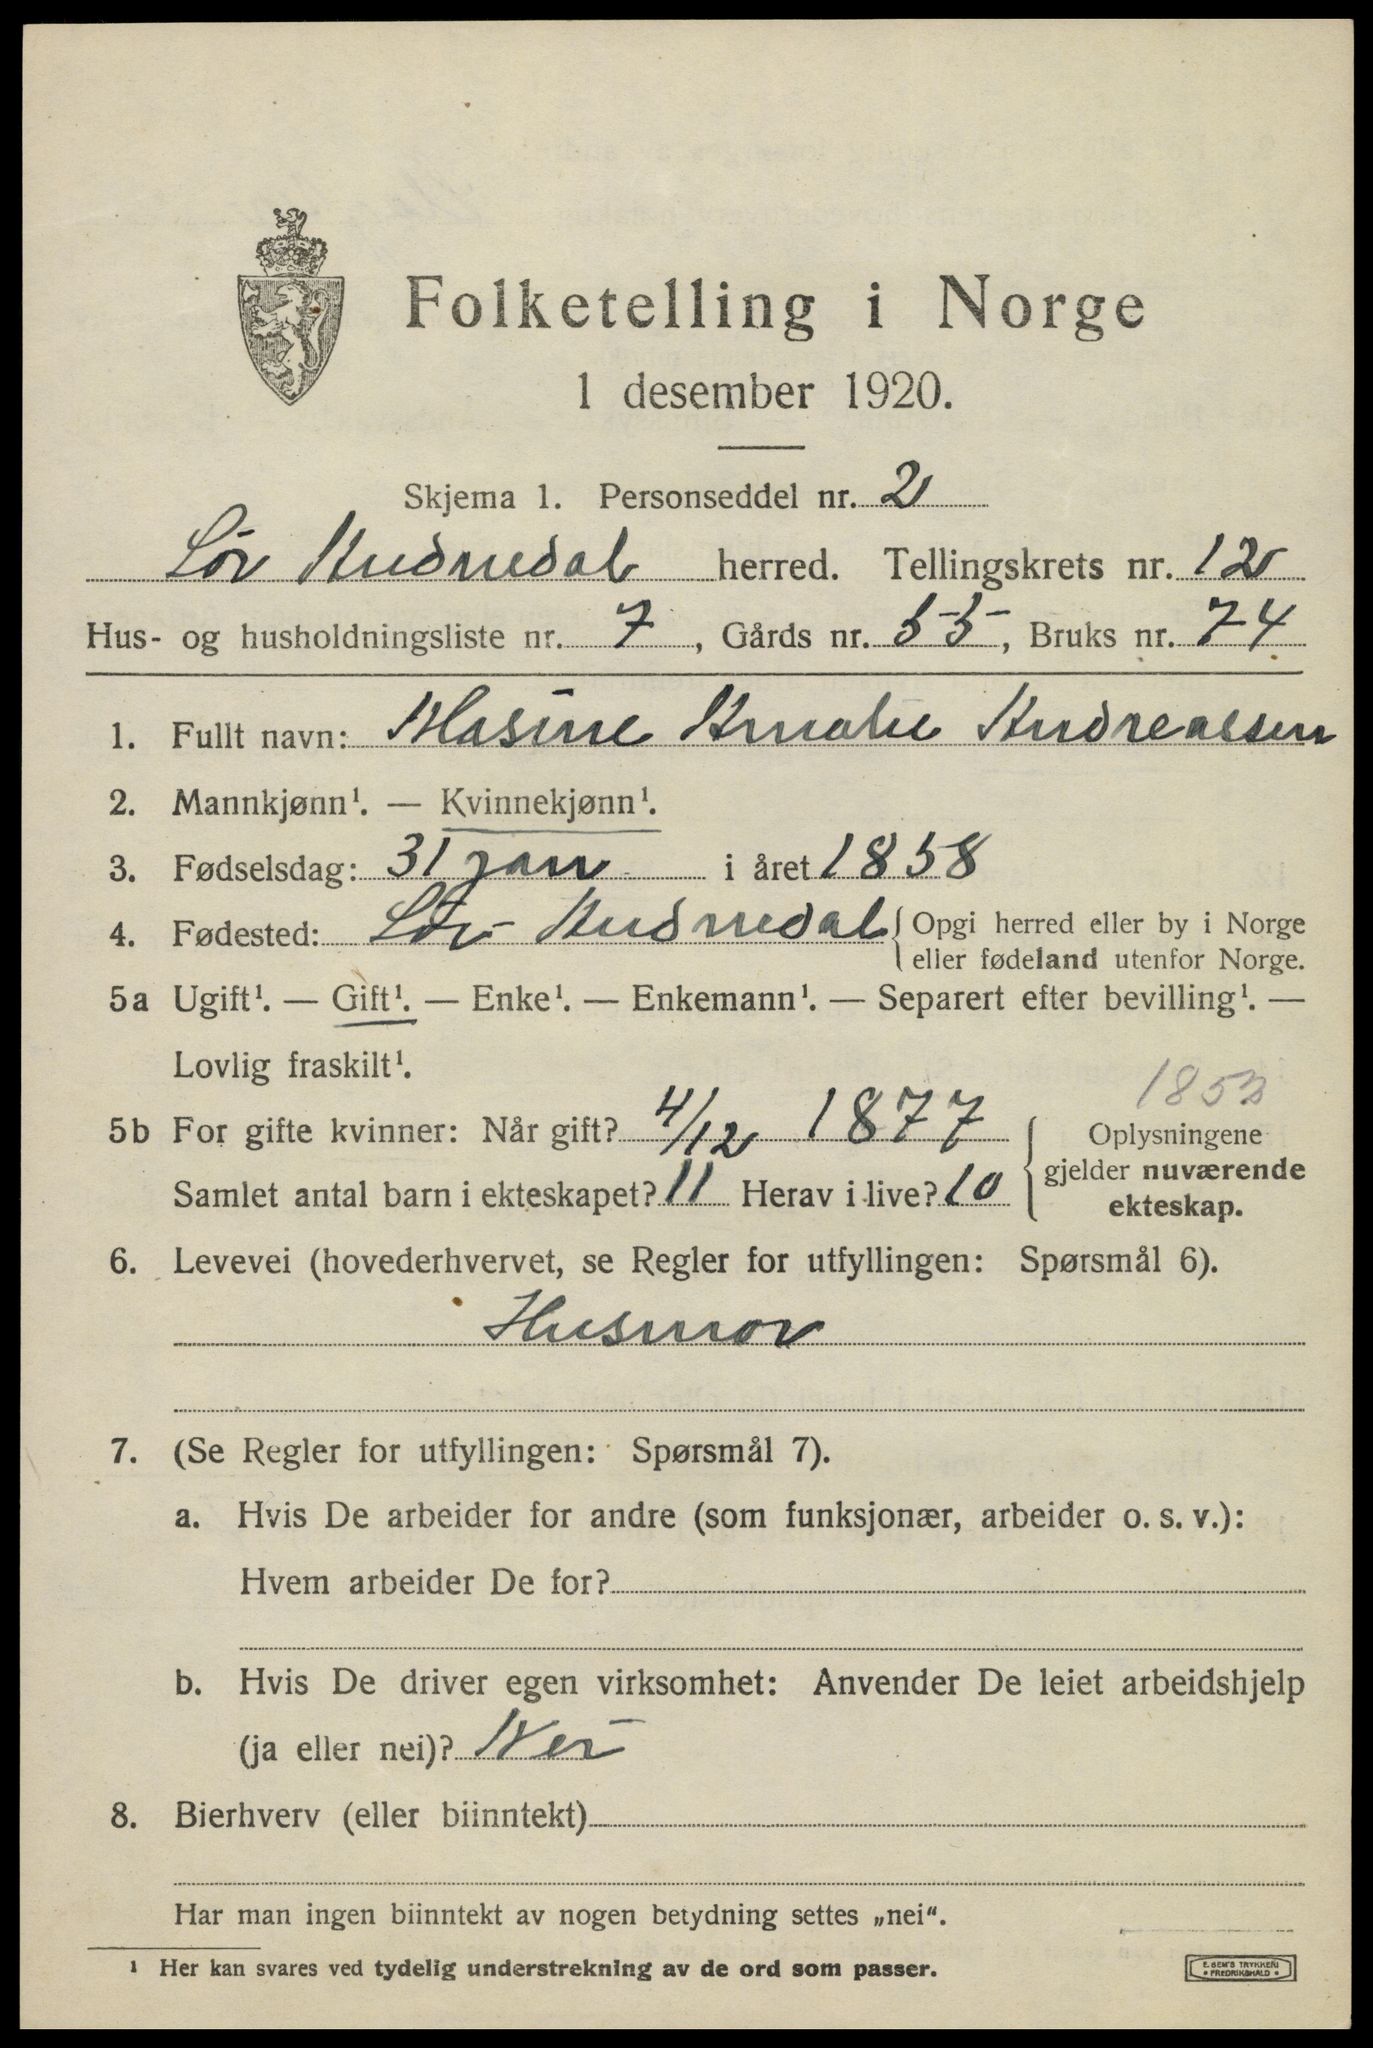 Folketelling i Norge
1 desember 1920.
Skjema 1. Personseddel nr. 2
Sör Audnedal herred. Tellingskrets nr. 12
Hus- og husholdningsliste nr. 7, Gårds nr. 55, Bruks nr. 74
1. Fullt navn: Masine Amalie Andreassen
2. Mannkjønn¹. — Kvinnekjønn¹.
3. Fødselsdag: 31 jan i året 1858
4. Fødested: Sör Audnedal { Opgi herred eller by i Norge
eller fødeland utenfor Norge.
5a Ugift¹. — Gift¹. — Enke¹. — Enkemann¹. — Separert efter bevilling¹. —
Lovlig fraskilt¹.
1853
5b For gifte kvinner: Når gift? 4/12 1877
Samlet antal barn i ekteskapet? 11 Herav i live? 10
{ Oplysningene
gjelder nuværende
ekteskap.
6. Levevei (hovederhvervet, se Regler for utfyllingen: Spørsmål 6).
Husmor
7. (Se Regler for utfyllingen: Spørsmål 7).
a. Hvis De arbeider for andre (som funksjonær, arbeider o. s. v.):
Hvem arbeider De for?
b. Hvis De driver egen virksomhet: Anvender De leiet arbeidshjelp
(ja eller nei)? Nei
8. Bierhverv (eller biinntekt)
Har man ingen biinntekt av nogen betydning settes „nei“.
¹ Her kan svares ved tydelig understrekning av de ord som passer.
E. SEM'S TRYKKERI
• FREDRIKSHALD •